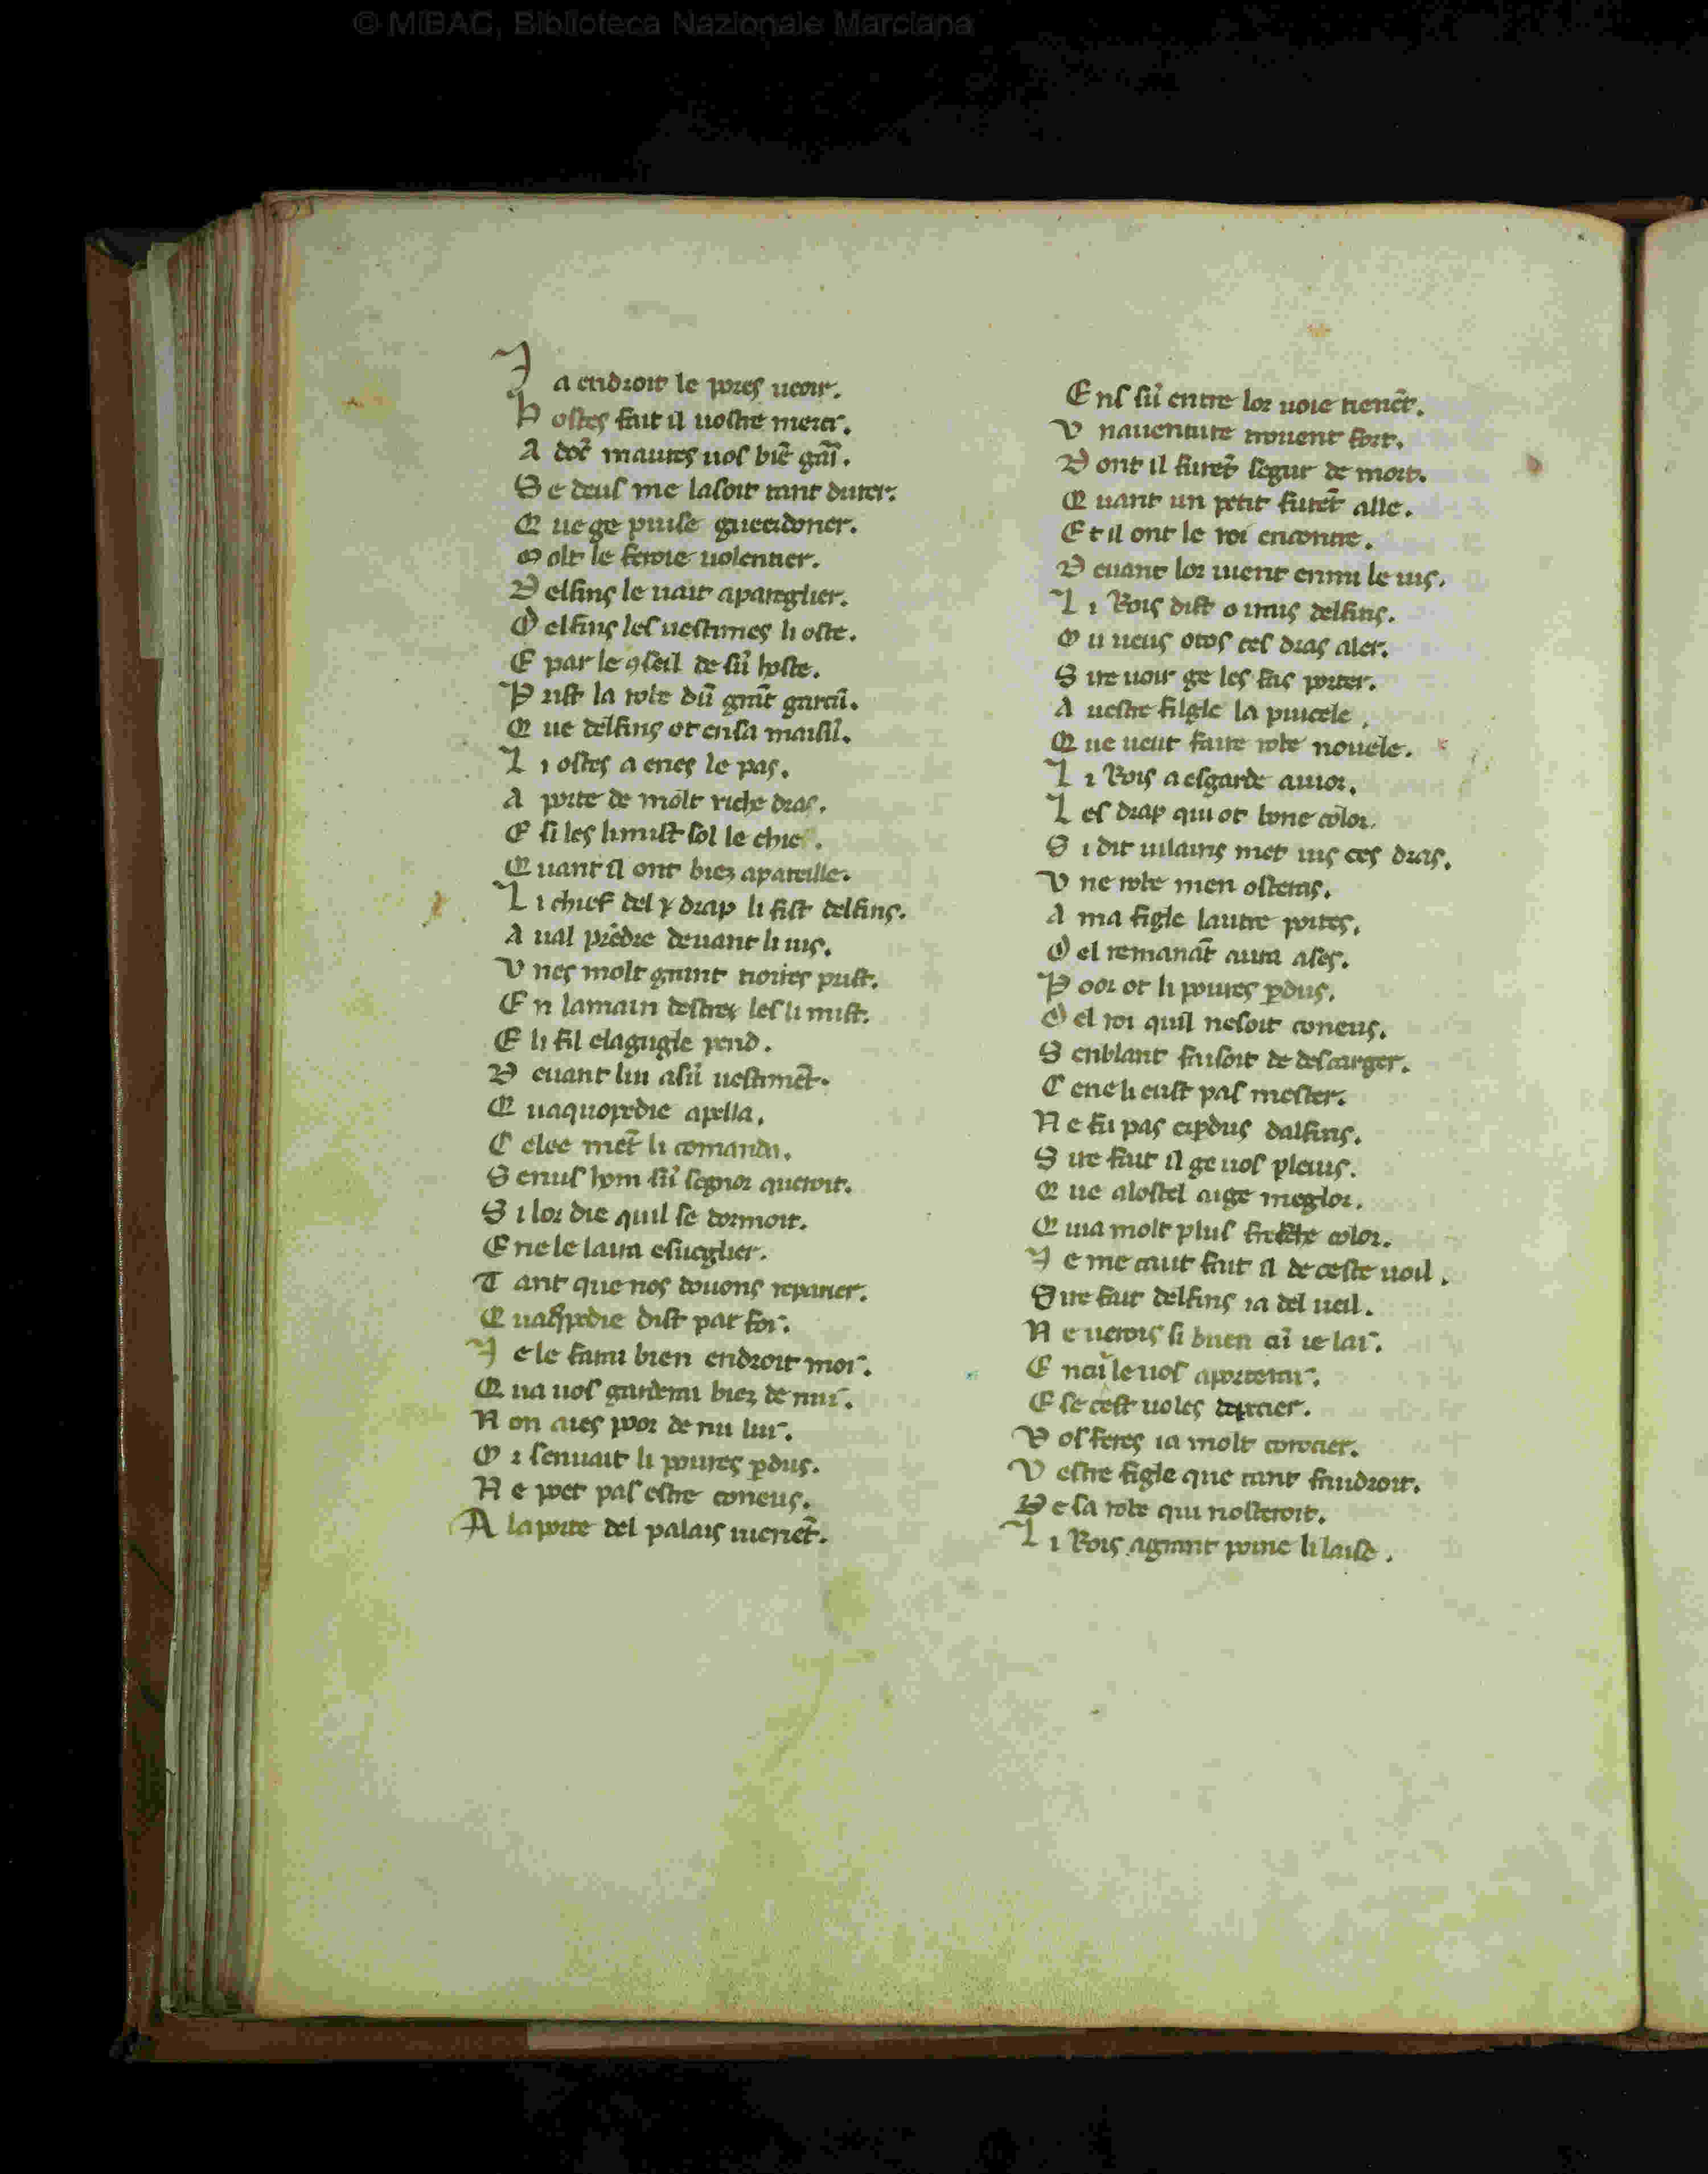 © MiBAC, Biblioteca Nazionale Marciana
J a endroit le pores ueoir.
H ostes fait il uostre merci.
A dōc mautes uos biē garī.
S e deus me lasoit tant durer.
Q ue ge puise gueerdoner.
M olt le feroie uolentier.
D elfins le uait apareglier.
D elfins les uestimes li oste.
E par le ꝯseil de sū hoste.
P rist la robe dū grāt garcū.
Q ue delfins ot ensa maisū.
L i ostes a enes le pas.
A porte de molt riche dras.
E si les limist sol le chief.
Q uant il ont biez apareille.
L i chief del drap li fist delfins.
A ual prēdre deuant li uis.
U nes molt grant tortes prist.
E n lamain destres les li mist.
E li fil elagugle prend.
D euant lui asū uestimēt.
Q uaquopedie apella.
C elee mēt li comanda.
S enus hom sū segnor queroit.
S i lor die quil se dormoit.
E ne le laira esueglier.
T ant que nos douons reparier.
Q uaqꝑedie dist par foi.
J e le farai bien endroit moi.
Q ua uos garderai biez de mi.
N on aies poor de nu lui.
O i senuait li poures ꝑdus.
N e poet pas estre coneus.
A laporte del palais uienēt.
E ns sū entre lor uoie tienēt.
U nauenture trouent fort.
D ont il furēt segur de mort.
Q uant un petit furēt alle.
E t il ont le roi encontre.
D euant lor uient enmi le uis.
L i Rois dist o irais delfins.
O u ueus otos ces dras aler.
S ire uoir ge les fas porter.
A uestre filgle la pucele.
Q ue ueut faire robe nouele.
L i Rois a esgarde autor.
L es drap qui ot bone color.
S i dit uilains met ius ces dras.
U ne robe men osteras.
A ma figle lautre portes.
D el remanāt aura ases.
P oor ot li poures ꝑdus.
D el roi quil nesoit coneus.
S enblant faisoit de descarger.
C ene li eust pas mester.
N e fu pas eiꝑdus dalfins.
S ire fait il ge uos pleuis.
Q ue alostel aige meglor.
Q uia molt plus freske color.
N e me caut fait il de ceste uoil.
S ire fait delfins ia del ueil.
N e uerois si buen cū ie lai.
E ncui le uos aporterai.
E se cest uoles depecier.
U os feres ia molt corocier.
U estre figle que tant faudroit.
D e sa robe qui nosteroit.
L i Rois agrant poine li laise.